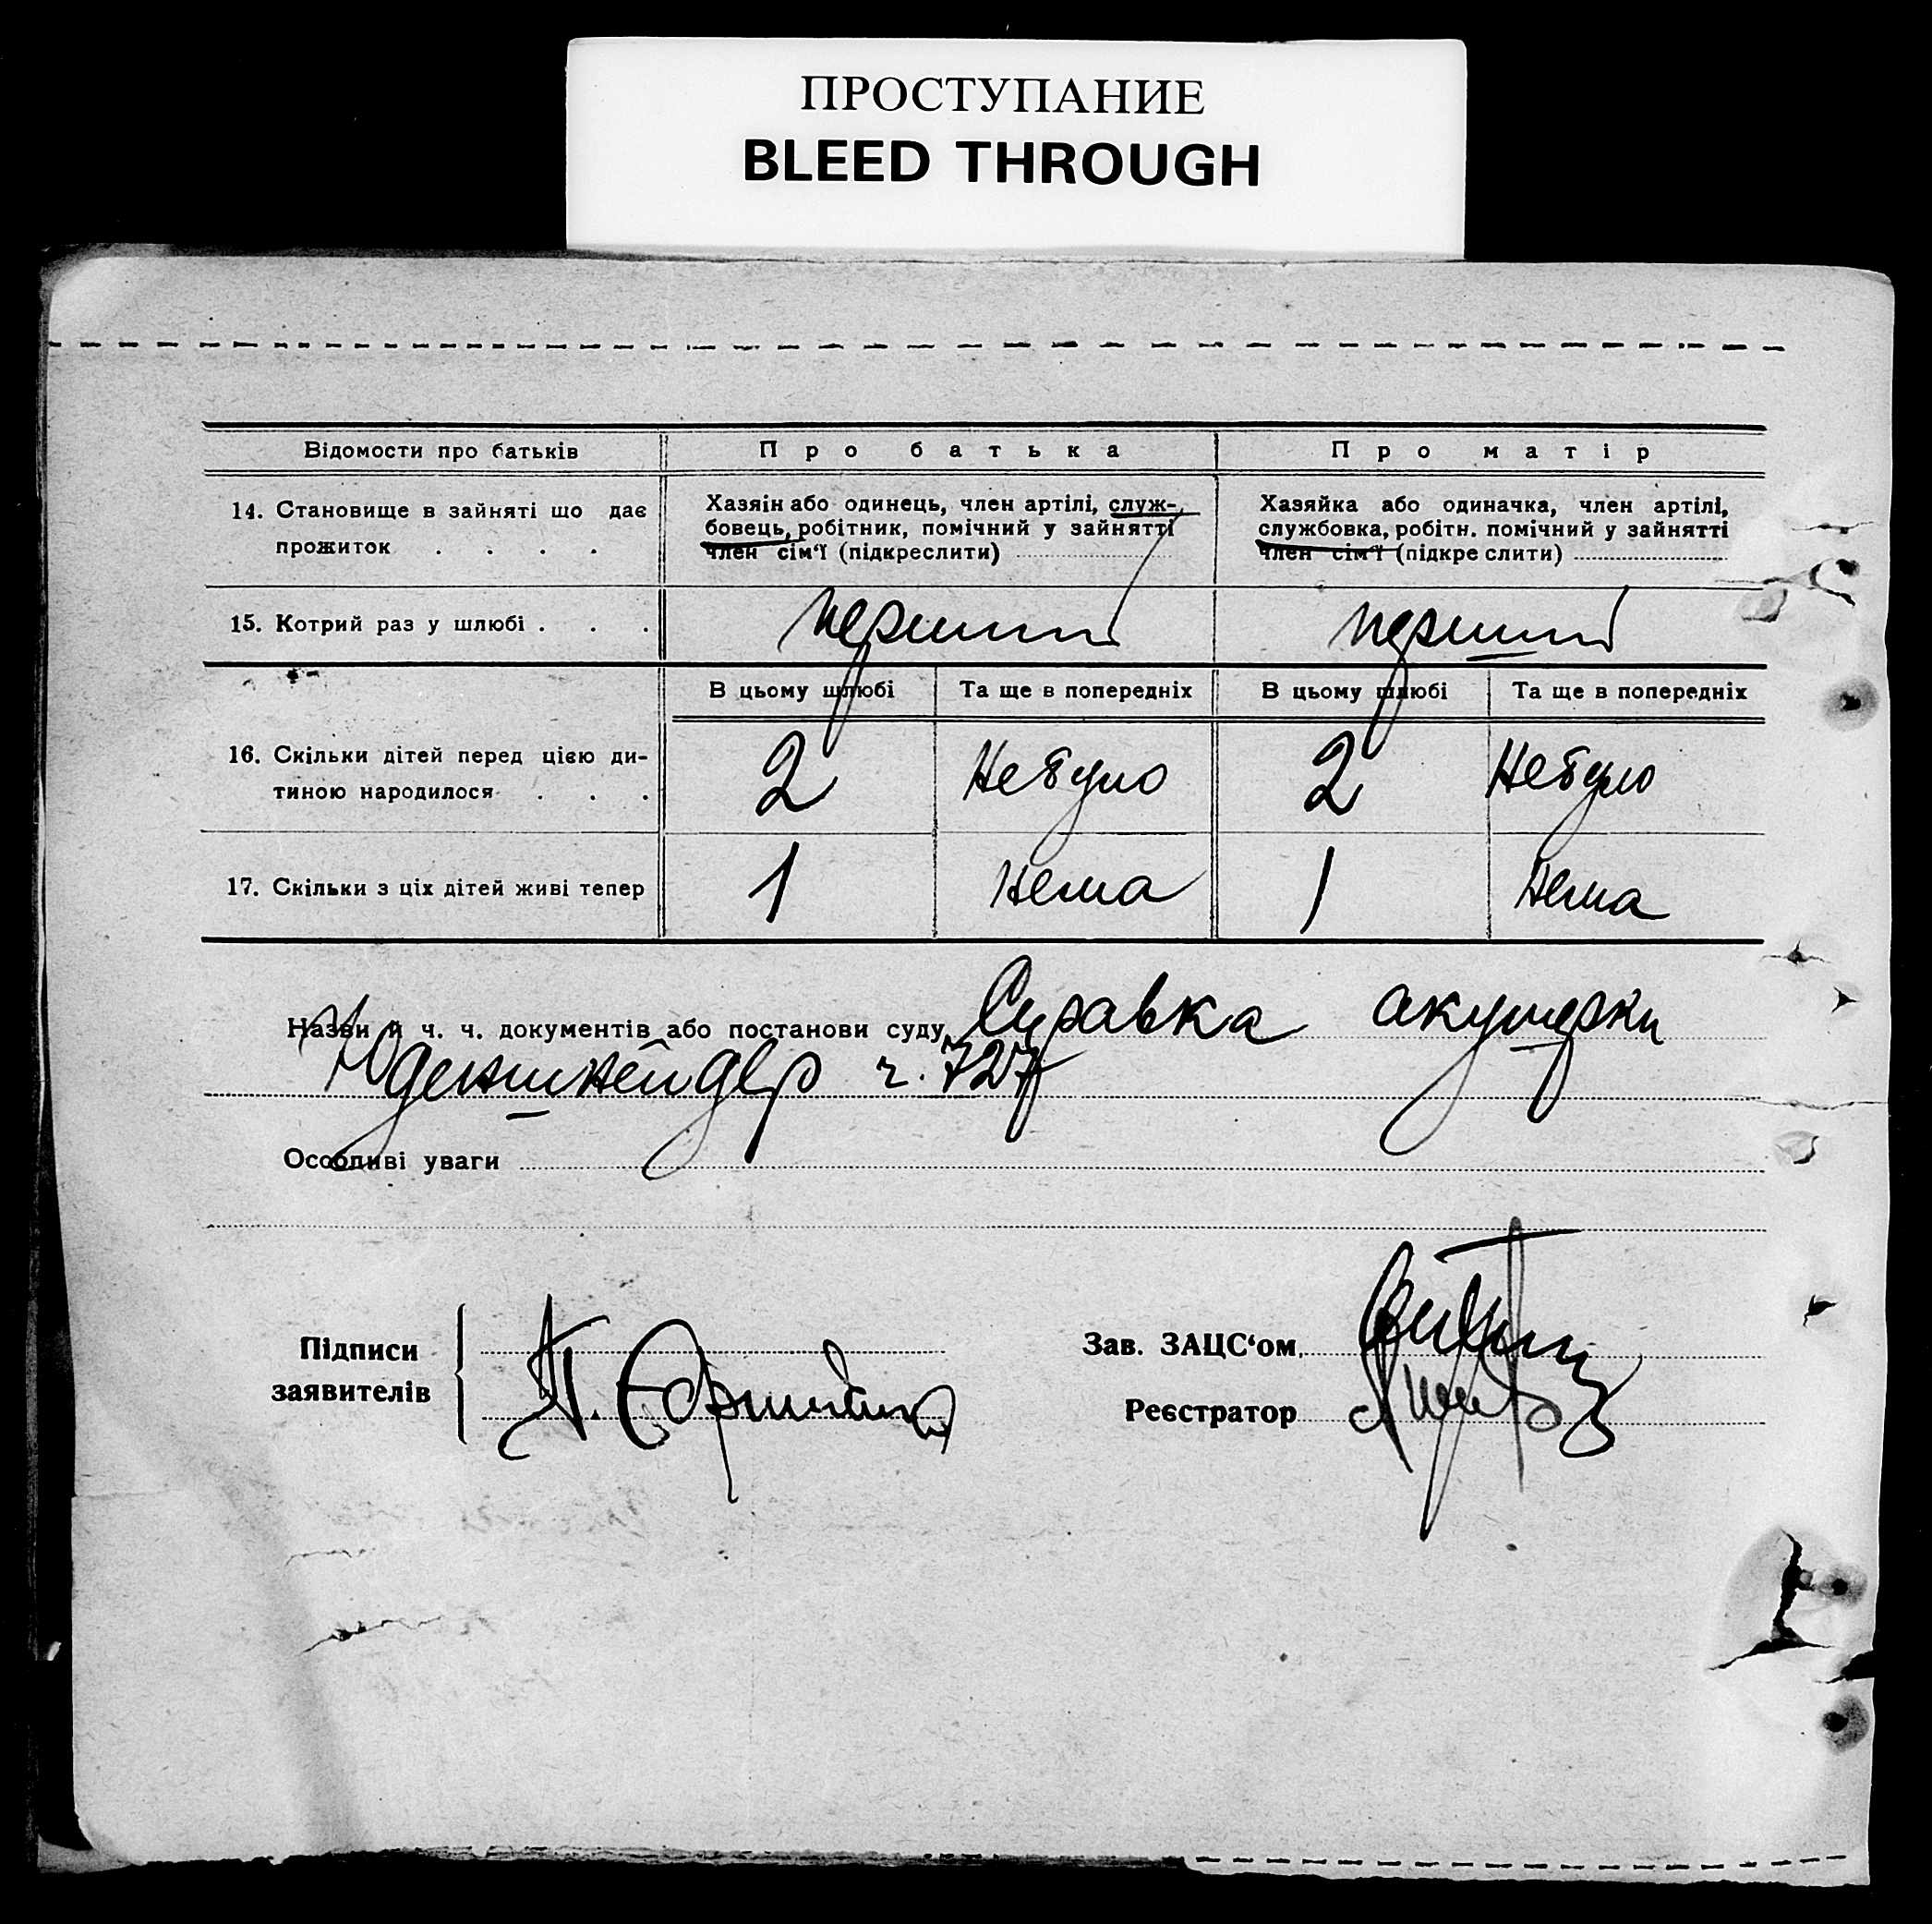 ПРОСТУПАНИЕ
BLEED THROUGH
Відомости про батьків
Про батька
Про матір
14. Становище в зайняті що дає
прожиток . . . .
Хазяін або одинець, член артілі, служ-
бовець, робітник, помічний у зайнятті
член сім'ї (підкреслити)
Хазяйка або одиначка, член артілі,
службовка, робітн. помічний у зайнятті
член сім'ї (підкре слити)
15. Котрий раз у шлюбі . . .
перший
перший
В цьому шлюбі
Та ще в попередніх
В цьому шлюбі
Та ще в попередніх
16. Скільки дітей перед цією ди-
тиною народилося . . .
2
Небуло
2
Небуло
17. Скільки з ціх дітей живі тепер
1
Нема
1
Нема
Назви й ч. ч. документів або постанови суду Справка акушерки
ч. 727
Особливі уваги
Підписи
заявителів
Зав. ЗАЦС'ом
Реєстратор